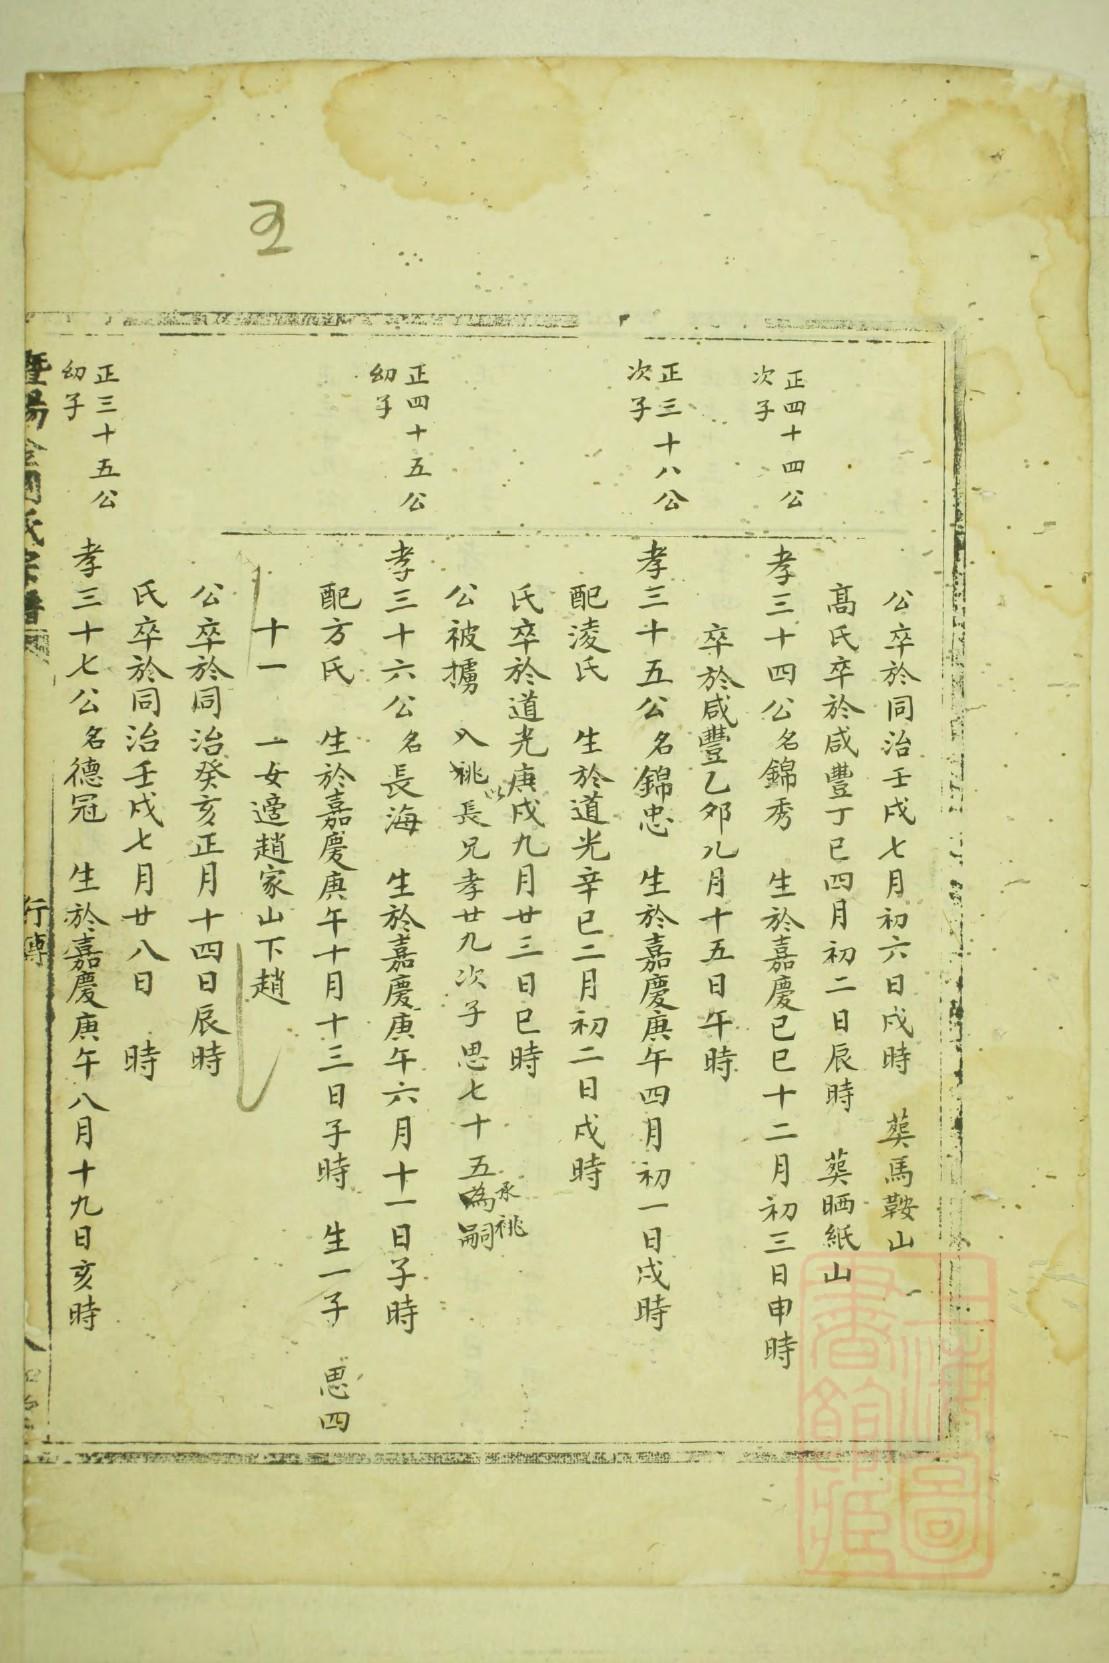 公卒於同治壬戌七月初六日戌時 葬馬鞍山
高氏卒於咸豐丁巳四月初二日辰時 葬晒紙山
正四十四公
次子
孝三十四公名錦秀 生於嘉慶己巳十二月初三日申時
卒於咸豐乙卯八月十五日午時
正三十八公
次子
孝三十五公名錦忠 生於嘉慶庚午四月初一日戌時
配淩氏 生於道光辛巳二月初二日戌時
氏卒於道光庚戌九月廿三日巳時
公被擄 入祧長兄孝廿九次子思七十五為嗣
以
承祧
正四十五公
幼子
孝三十六公名長海 生於嘉慶庚午六月十一日子時
配方氏 生於嘉慶庚午十月十三日子時 生一子 思四
十一 一女適趙家山下趙
公卒於同治癸亥正月十四日辰時
氏卒於同治壬戌七月廿八日 時
正三十五公
幼子
孝三十七公名德冠 生於嘉慶庚午八月十九日亥時
暨陽 氏宗譜
行傳
上海圖
書館藏